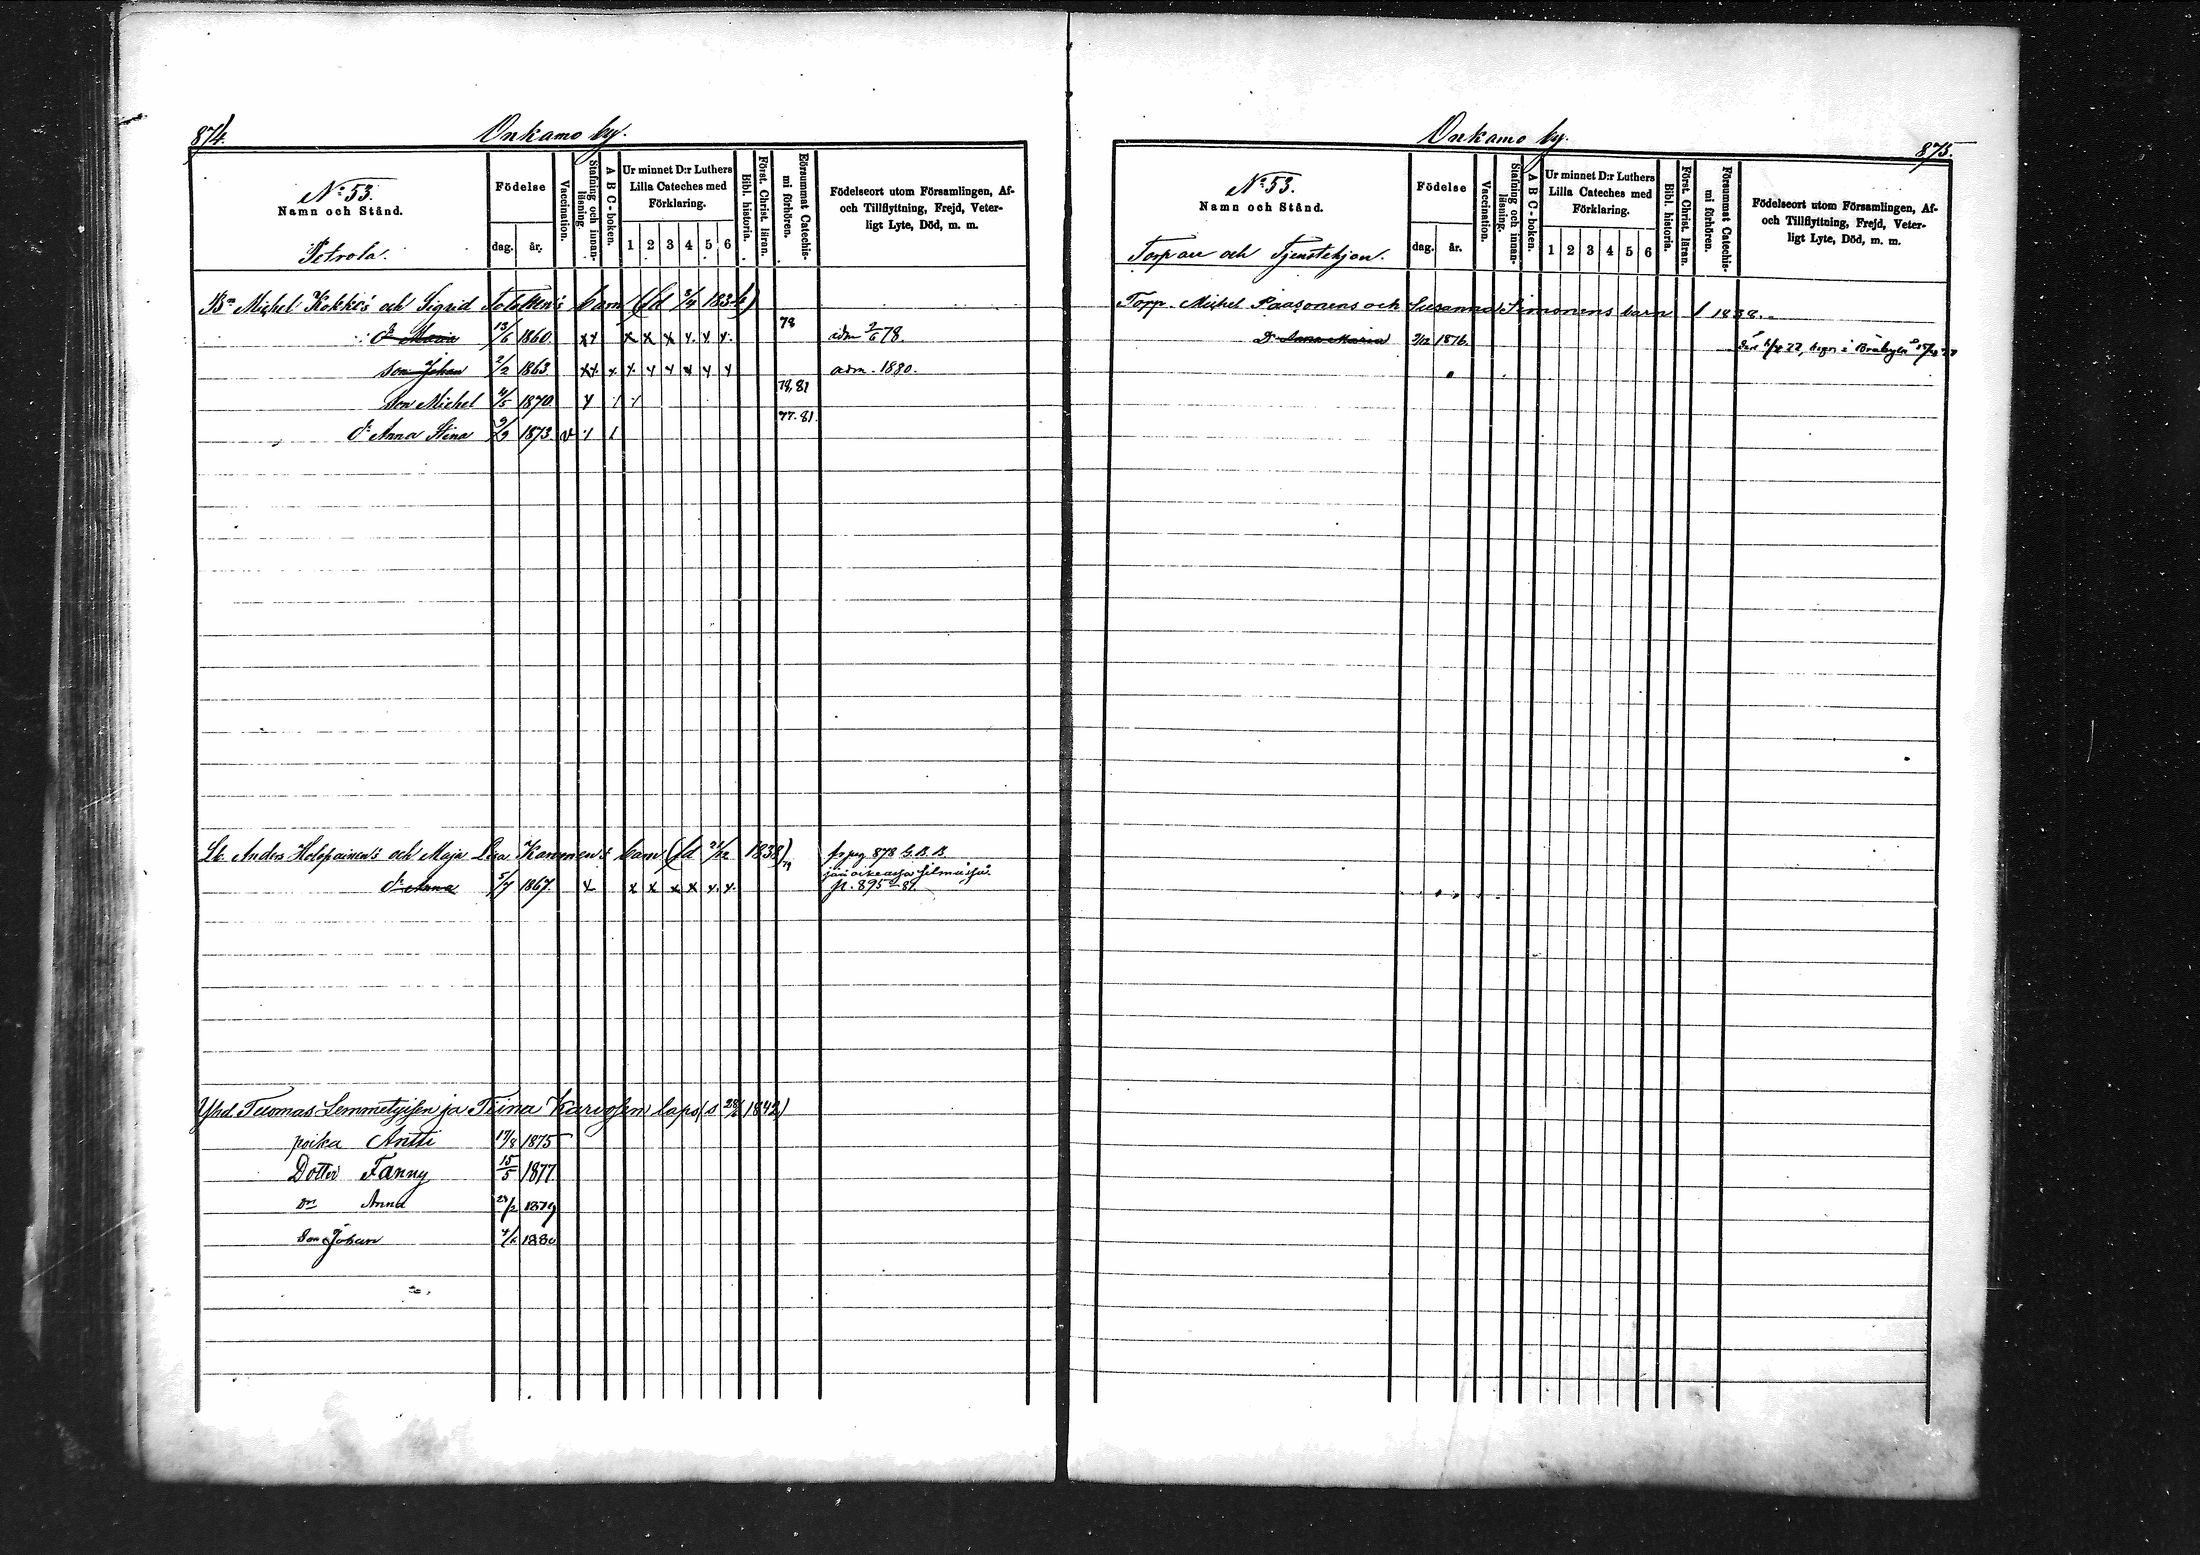 874.
Onkamo by.
No 53.
Namn och Stånd.
Petrola.
Födelse
dag. år.
Vaccination.
Stafning och innan-
läsning
A B C-boken.
Ur minnet D:r Luthers
Lilla Cateches med
Förklaring.
1 2 3 4 5 6
Bibl. historia.
Först. Christ. läran.
Försummat Catechis-
mi förhören.
Födelseort utom Församlingen, Af-
och Tillflyttning, Frejd, Veter-
ligt Lyte, Död, m. m.
Bn Michel Kokko's och Sigrid barn
78
dr Maria 13/6 1860 xx x x x x x x adm 2/6 78.
son Johan 2/2 1863 xx x x x x x x x adm. 1880.
78, 81
son Michel 1870 x
77. 81.
dr Anna Stina 1873 v
Anders Holopainen's och Maja Lisa barn (fd 21/12 1838) 79 878
dr Anna 5/7 1867 x x x x x x x p. 895 - 81
Tuomas Lemmetyisen ja Tiina Karvosen laps (s 1842)
poika Antti 17/8 1875
Dotter Fanny 15/5 1877
Dr Anna 1879
Son Johan 1880
Onkamo by.
875.
No 53.
Namn och Stånd.
Torpare och Tjenstehjon.
Födelse
dag. år.
Vaccination.
Stafning och innan-
läsning.
A B C-boken.
Ur minnet D:r Luthers
Lilla Cateches med
Förklaring.
1 2 3 4 5 6
Bibl. historia.
Först. Christ. läran.
Försummat Catechis-
mi förhören.
Födelseort utom Församlingen, Af-
och Tillflyttning, Frejd, Veter-
ligt Lyte, Död, m. m.
Torp. Michel Paasonens och Susanna Simonens barn f 1838.
Dr Anna Maria 1876.